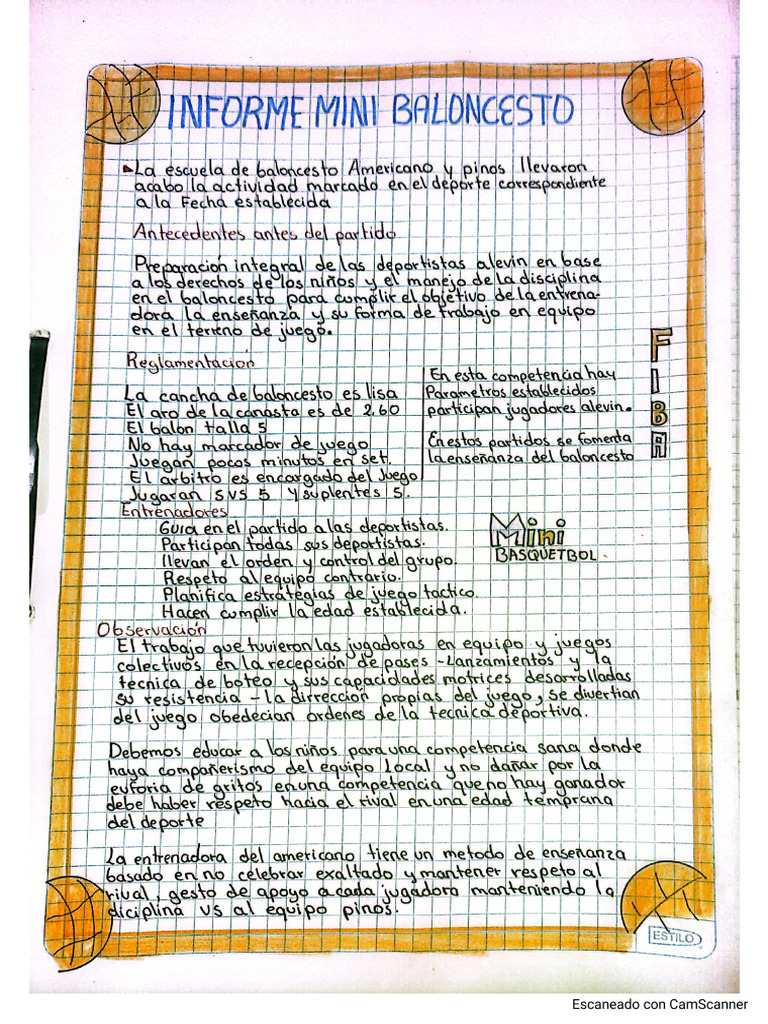 INFORME MINI BALONCESTO
La escuela de baloncesto Americano y pinos llevaron
acabo la actividad marcado en el deporte correspondiente
a la Fecha establecida
Antecedentes antes del partido
Preparación integral de las deportistas alevin en base
a los derechos de los niños y el manejo de la disciplina
en el baloncesto para cumplir el objetivo de la entrena-
dora la enseñanza y su forma de trabajo en equipo
en el terreno de juego.
Reglamentación
La cancha de baloncesto es lisa
El aro de la canasta es de 2.60
El balon talla 5
No hay marcador de juego
Juegan pocos minutos en set
El arbitro es encargado del Juego
Jugaran 5 vs 5 y suplentes 5.
En esta competencia hay
Parametros establecidos
participan jugadores alevin.
En estos partidos se fomenta
la enseñanza del baloncesto
FIBA
Entrenadores
Guia en el partido a las deportistas.
Participan todas sus deportistas.
llevan el orden y control del grupo.
Respeto al equipo contrario.
Planifica estrategias de juego tactico.
Hacen cumplir la edad establecida.
Mini
BASQUETBOL.
Observación
El trabajo que tuvieron las jugadoras en equipo y juegos
colectivos en la recepción de pases - Lanzamientos y la
tecnica de boteo y sus capacidades motrices desarrolladas
su resistencia - la dirrección propias del juego, se divertian
del juego obedecian ordenes de la tecnica deportiva.
Debemos educar a los niños para una competencia sana donde
haya compañerismo del equipo Local y no dañar por la
euforia de gritos en una competencia que no hay ganador
debe haber respeto hacia el rival en una edad temprana
del deporte
La entrenadora del americano tiene un metodo de enseñanza
basado en no celebrar exaltado y mantener respeto al
rival, gesto de apoyo a cada jugadora manteniendo la
diciplina vs al equipo pinos.
ESTILO
Escaneado con CamScanner